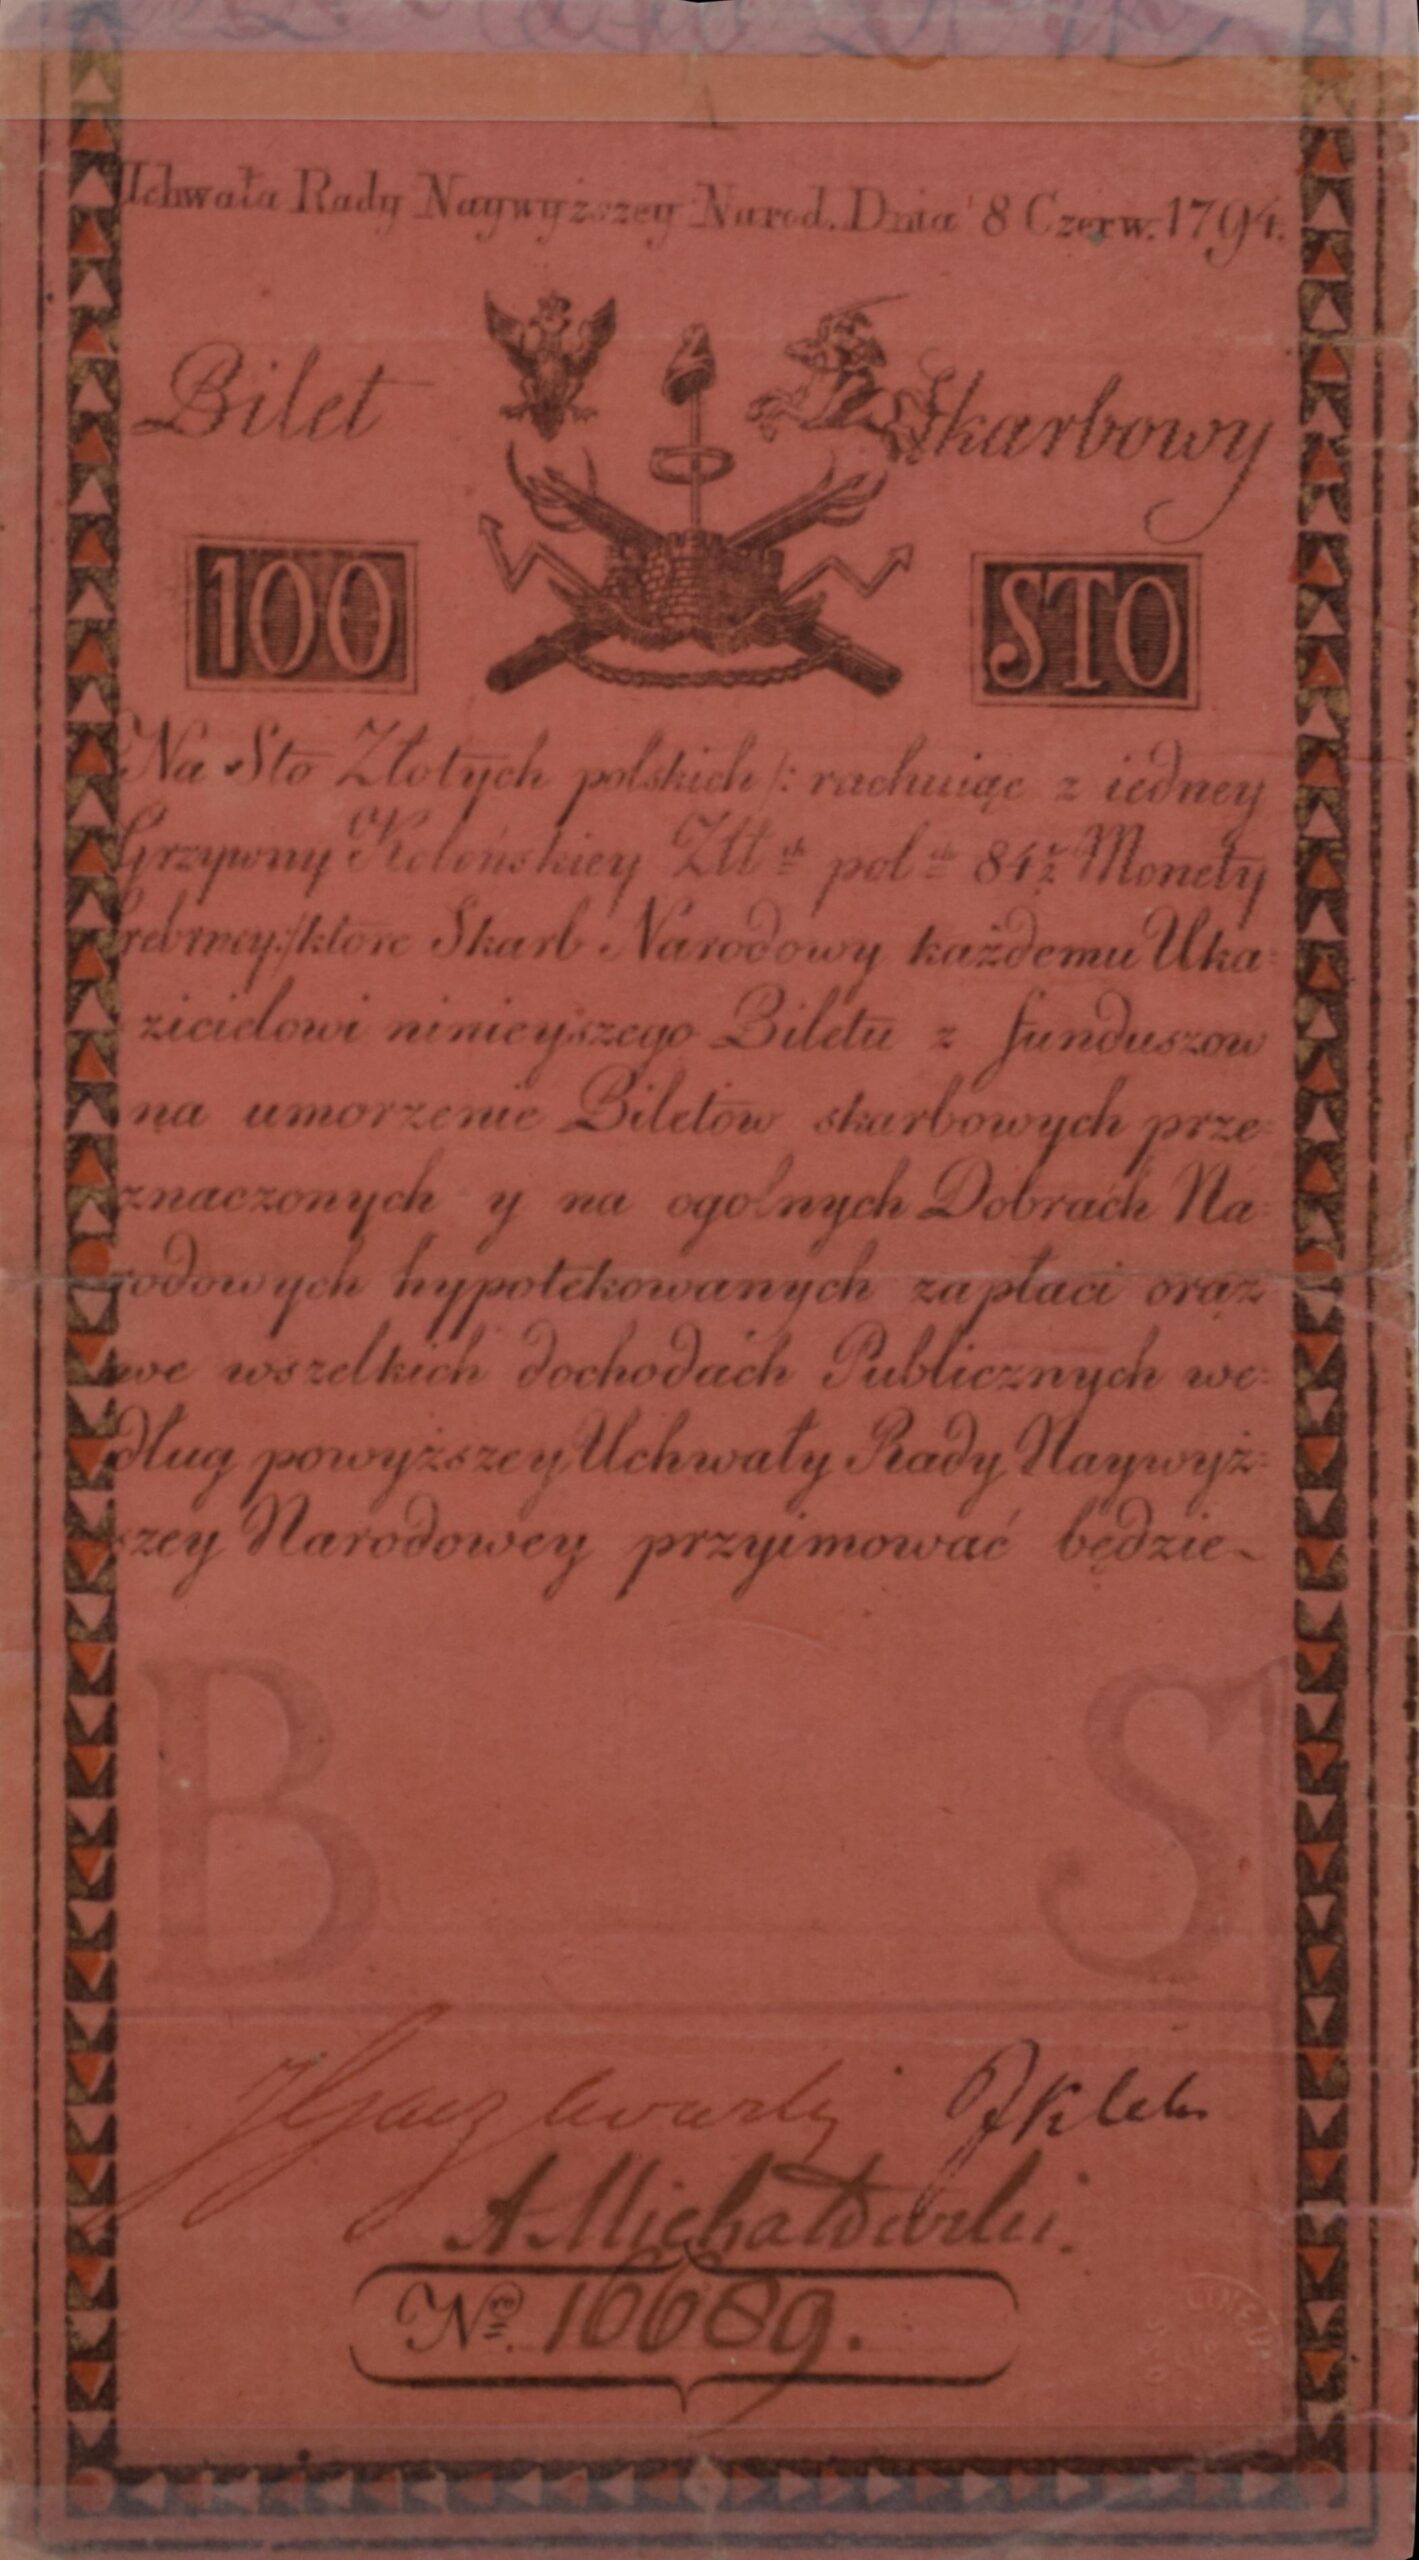 Uchwała Rady Naywyższey Narod. Dnia 8 Czerw. 1794.
Bilet Skarbowy
100 STO
Na Sto Złotych polskich /: rachuiąc z iedney
Grzywny Kolońskiey Złł ch pol ch 84 ½ Monety
Srebrney :/ ktore Skarb Narodowy każdemu Uka=
zicielowi ninieyszego Biletu z funduszow
na umorzenie Biletow skarbowych prze=
znaczonych y na ogolnych Dobrach Na=
rodowych hypotekowanych zapłaci oraz
we wszelkich dochodach Publicznych we=
dług powyższey Uchwały Rady Naywyż=
szey Narodowey przyimować będzie
B S
A. Michałowski.
Nro. 16689.